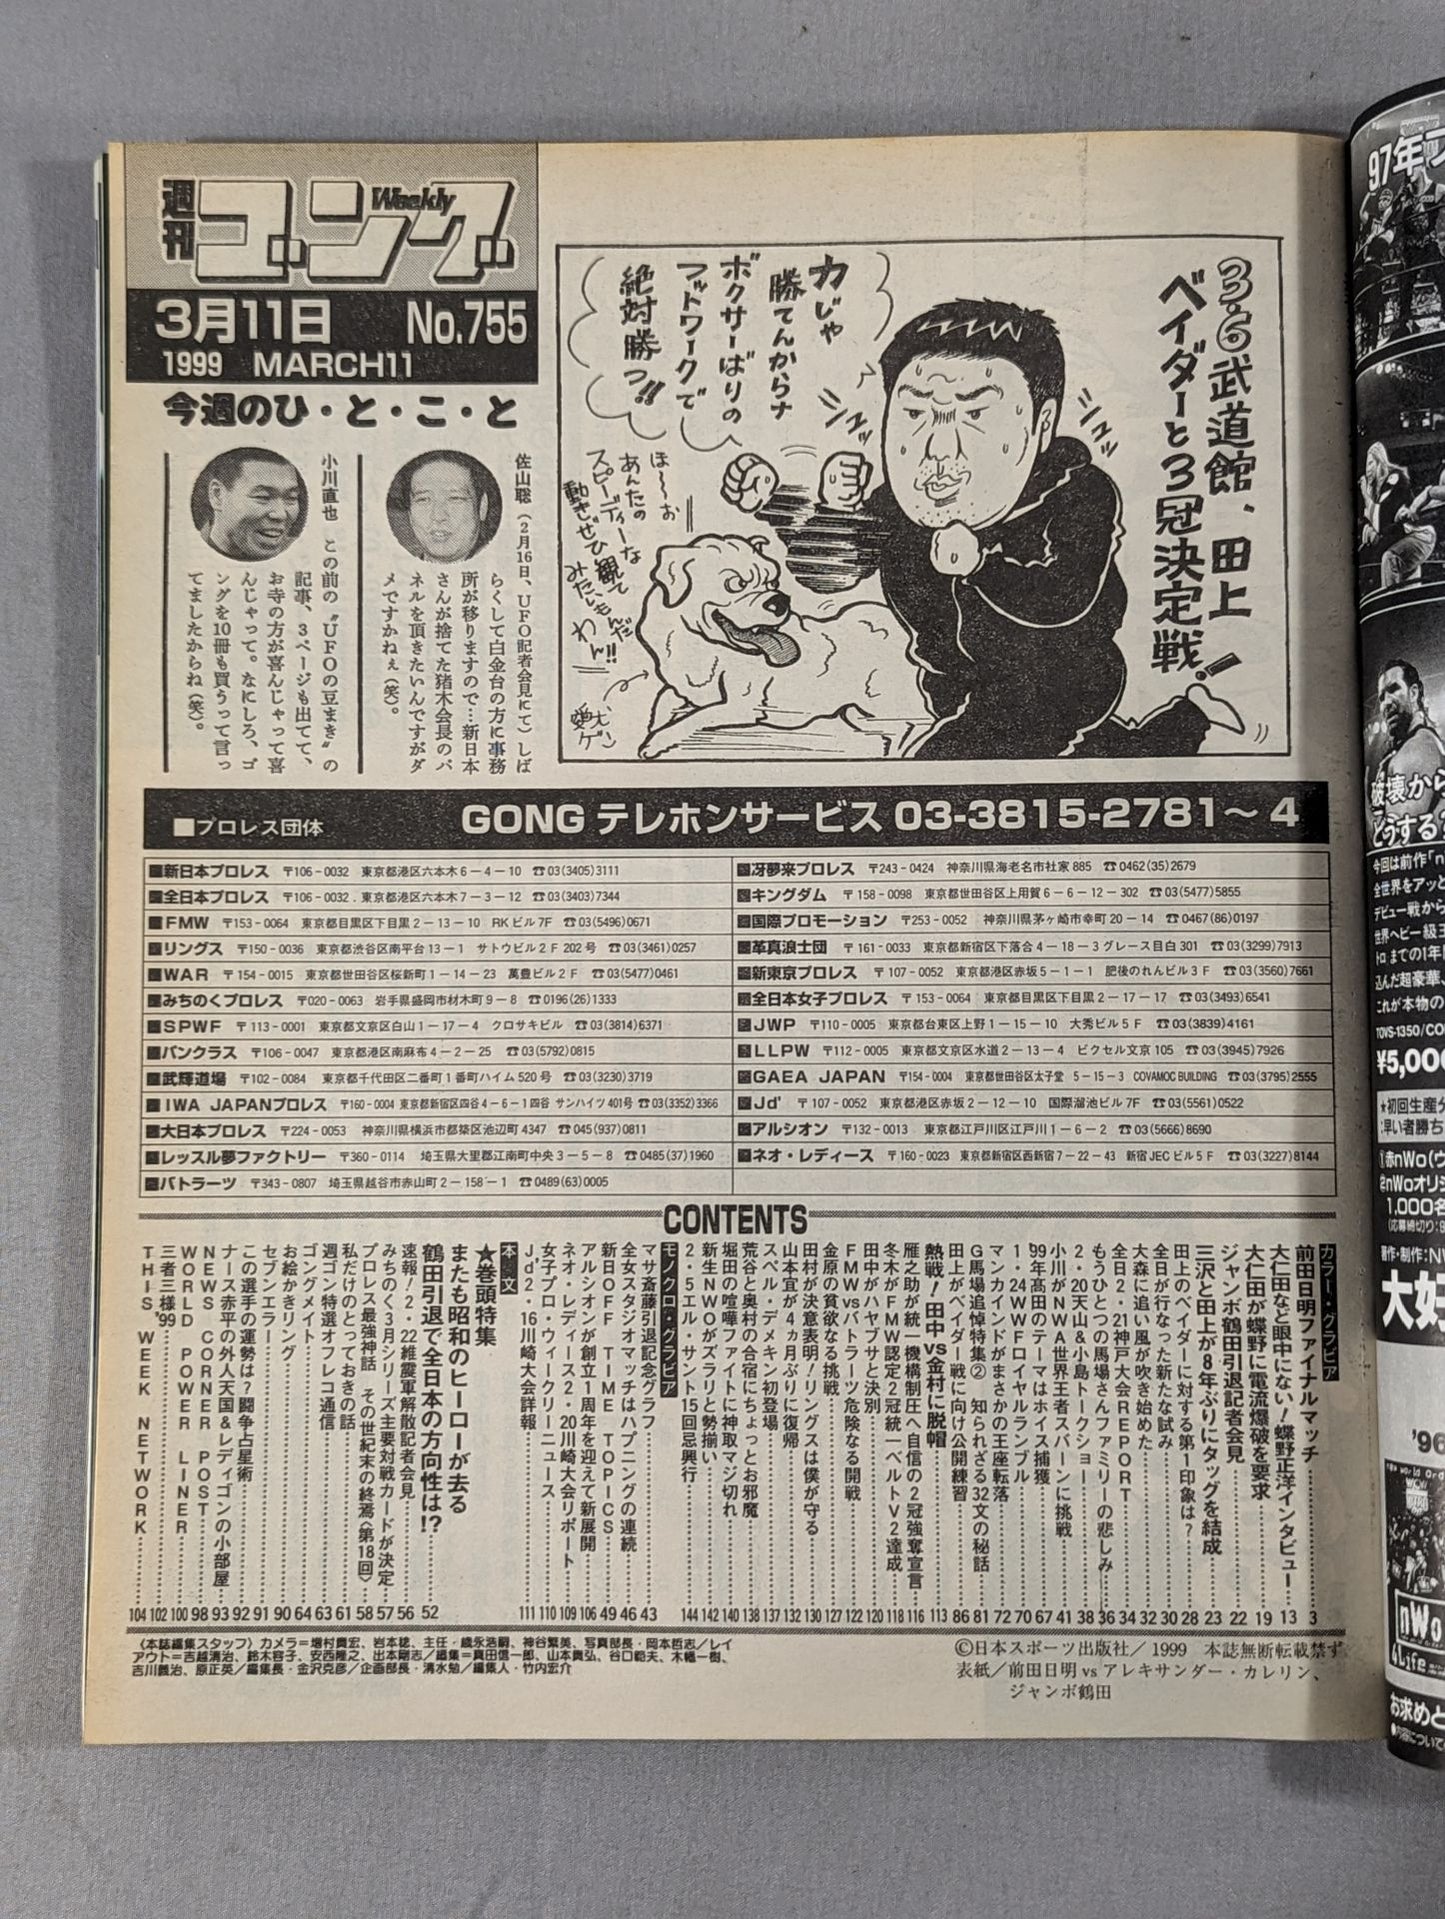 週刊
ゴング
Weekly
3月11日 No.755
1999 MARCH11
今週のひ・と・こ・と
佐山聡(2月16日、UFO記者会見にて)しば
らくして白金台の方に事務
所が移りますので…新日本
さんが捨てた猪木会長のパ
ネルを頂きたいんですがダ
メですかねぇ(笑)。
小川直也 この前の〝UFOの豆まき〟の
記事、3ページも出てて、
お寺の方が喜んじゃって喜
んじゃって。なにしろ、ゴ
ングを10冊も買うって言っ
てましたからね(笑)。
3.6武道館、田上
ベイダーと3冠決定戦!
力じゃ
勝てんからナ
ボクサーばりの
フットワークで
絶対勝つ!!
シュッ
シュッ
ほ〜〜お
あんたの
スピーディーな
動きぜひ観て
みたいもんだ
わん!!
愛犬、ゲン
■プロレス団体 GONG テレホンサービス 03-3815-2781〜4
■新日本プロレス 〒106-0032 東京都港区六本木6-4-10 ☎03(3405)3111
■全日本プロレス 〒106-0032 東京都港区六本木7-3-12 ☎03(3403)7344
■FMW 〒153-0064 東京都目黒区下目黒2-13-10 RKビル7F ☎03(5496)0671
■リングス 〒150-0036 東京都渋谷区南平台13-1 サトウビル2F 202号 ☎03(3461)0257
■WAR 〒154-0015 東京都世田谷区桜新町1-14-23 萬豊ビル2F ☎03(5477)0461
■みちのくプロレス 〒020-0063 岩手県盛岡市材木町9-8 ☎0196(26)1333
■SPWF 〒113-0001 東京都文京区白山1-17-4 クロサキビル ☎03(3814)6371
■パンクラス 〒106-0047 東京都港区南麻布4-2-25 ☎03(5792)0815
■武輝道場 〒102-0084 東京都千代田区二番町1番町ハイム520号 ☎03(3230)3719
■IWA JAPANプロレス 〒160-0004 東京都新宿区四谷4-6-1四谷サンハイツ401号 ☎03(3352)3366
■大日本プロレス 〒224-0053 神奈川県横浜市都築区池辺町4347 ☎045(937)0811
■レッスル夢ファクトリー 〒360-0114 埼玉県大里郡江南町中央3-5-8 ☎0485(37)1960
■バトラーツ 〒343-0807 埼玉県越谷市赤山町2-158-1 ☎0489(63)0005
■冴夢来プロレス 〒243-0424 神奈川県海老名市社家885 ☎0462(35)2679
■キングダム 〒158-0098 東京都世田谷区上用賀6-6-12-302 ☎03(5477)5855
■国際プロモーション 〒253-0052 神奈川県茅ヶ崎市幸町20-14 ☎0467(86)0197
■革真浪士団 〒161-0033 東京都新宿区下落合4-18-3グレース目白301 ☎03(3299)7913
■新東京プロレス 〒107-0052 東京都港区赤坂5-1-1 肥後のれんビル3F ☎03(3560)7661
■全日本女子プロレス 〒153-0064 東京都目黒区下目黒2-17-17 ☎03(3493)6541
■JWP 〒110-0005 東京都台東区上野1-15-10 大秀ビル5F ☎03(3839)4161
■LLPW 〒112-0005 東京都文京区水道2-13-4 ビクセル文京105 ☎03(3945)7926
■GAEA JAPAN 〒154-0004 東京都世田谷区太子堂 5-15-3 COVAMOC BUILDING ☎03(3795)2555
■Jd' 〒107-0052 東京都港区赤坂2-12-10 国際溜池ビル7F ☎03(5561)0522
■アルシオン 〒132-0013 東京都江戸川区江戸川1-6-2 ☎03(5666)8690
■ネオ・レディース 〒160-0023 東京都新宿区西新宿7-22-43 新宿JECビル5F ☎03(3227)8144
CONTENTS
カラー・グラビア
前田日明ファイナルマッチ……3
大仁田など眼中にない!蝶野正洋インタビュー……13
大仁田が蝶野に電流爆破を要求……19
ジャンボ鶴田引退記者会見……22
三沢と田上が8年ぶりにタッグを結成……23
田上のベイダーに対する第1印象は?……28
全日が行なった新たな試み……30
大森に追い風が吹き始めた……32
全日2・21神戸大会REPORT……34
もうひとつの馬場さんファミリーの悲しみ……36
2・20天山&小島トークショー……38
小川がNWA世界王者スバーンに挑戦……41
'99年高田のテーマはホイス捕獲……67
1・24WWFロイヤルランブル……70
マンカインドがまさかの王座転落……72
G馬場追悼特集② 知られざる32文の秘話……81
田上がベイダー戦に向け公開練習……86
熱戦!田中vs金村に脱帽……113
雁之助が統一機構制圧へ自信の2冠強奪宣言……116
冬木がFMW認定2冠統一ベルトV2達成……118
田中がハヤブサと決別……120
FMWvsバトラーツ危険なる開戦……122
金原の貧欲なる挑戦……127
田村が決意表明!リングスは僕が守る……130
山本宜が4ヵ月ぶりに復帰……132
スペル・デメキン初登場……137
荒谷と奥村の合宿にちょっとお邪魔……138
堀田の喧嘩ファイトに神取マジ切れ……140
新生NWOがズラリと勢揃い……142
2・5エル・サント15回忌興行……144
モノクロ・グラビア
マサ斎藤引退記念グラフ……43
全女スタジオマッチはハプニングの連続……46
新日OFF TIME TOPICS……49
アルシオンが創立1周年を迎えて新展開……106
ネオ・レディース2・20川崎大会リポート……109
女子プロ・ウィークリーニュース……110
Jd'2・16川崎大会詳報……111
本文
★巻頭特集
またも昭和のヒーローが去る
鶴田引退で全日本の方向性は!?……52
速報!2・22維震軍解散記者会見……56
みちのく3月シリーズ主要対戦カードが決定……57
プロレス最強神話 その世紀末の終焉〈第18回〉……58
私だけのとっておきの話……61
週ゴン特選オフレコ通信……63
ゴングメイト……64
お絵かきリング……90
セブンエラー……91
この選手の運勢は?闘争占星術……92
ナース赤平の外人天国&レディゴンの小部屋……93
NEWS CORNER POST……98
WORLD POWER LINER……100
三者三様'99……102
THIS WEEK NETWORK……104
〈本誌編集スタッフ〉カメラ=増村貴宏、岩本稔、主任・歳永浩嗣、神谷繁美、写真部長・岡本哲志/レイ
アウト=吉越満治、鈴木容子、安西隆之、出本剛志/編集=真田信一郎、山本貴弘、谷口範夫、木幡一樹、
吉川義治、原正英/編集長・金沢克彦/企画部長・清水勉/編集人・竹内宏介
©日本スポーツ出版社/1999 本誌無断転載禁ず
表紙/前田日明vsアレキサンダー・カレリン、
ジャンボ鶴田
97年
破壊から
どうする?
今回は前作「n
全世界をアッと
デビュー戦から
世界ヘビー級王
込んだ超豪華、
これが本物の
TOVS-1350/CO
¥5,000
★初回生産分
早い者勝ち
①赤nWo(ウ
②nWoオリジ
1,000名
著作・制作:NW
大好
'96
nWo
4 Life
お求めと